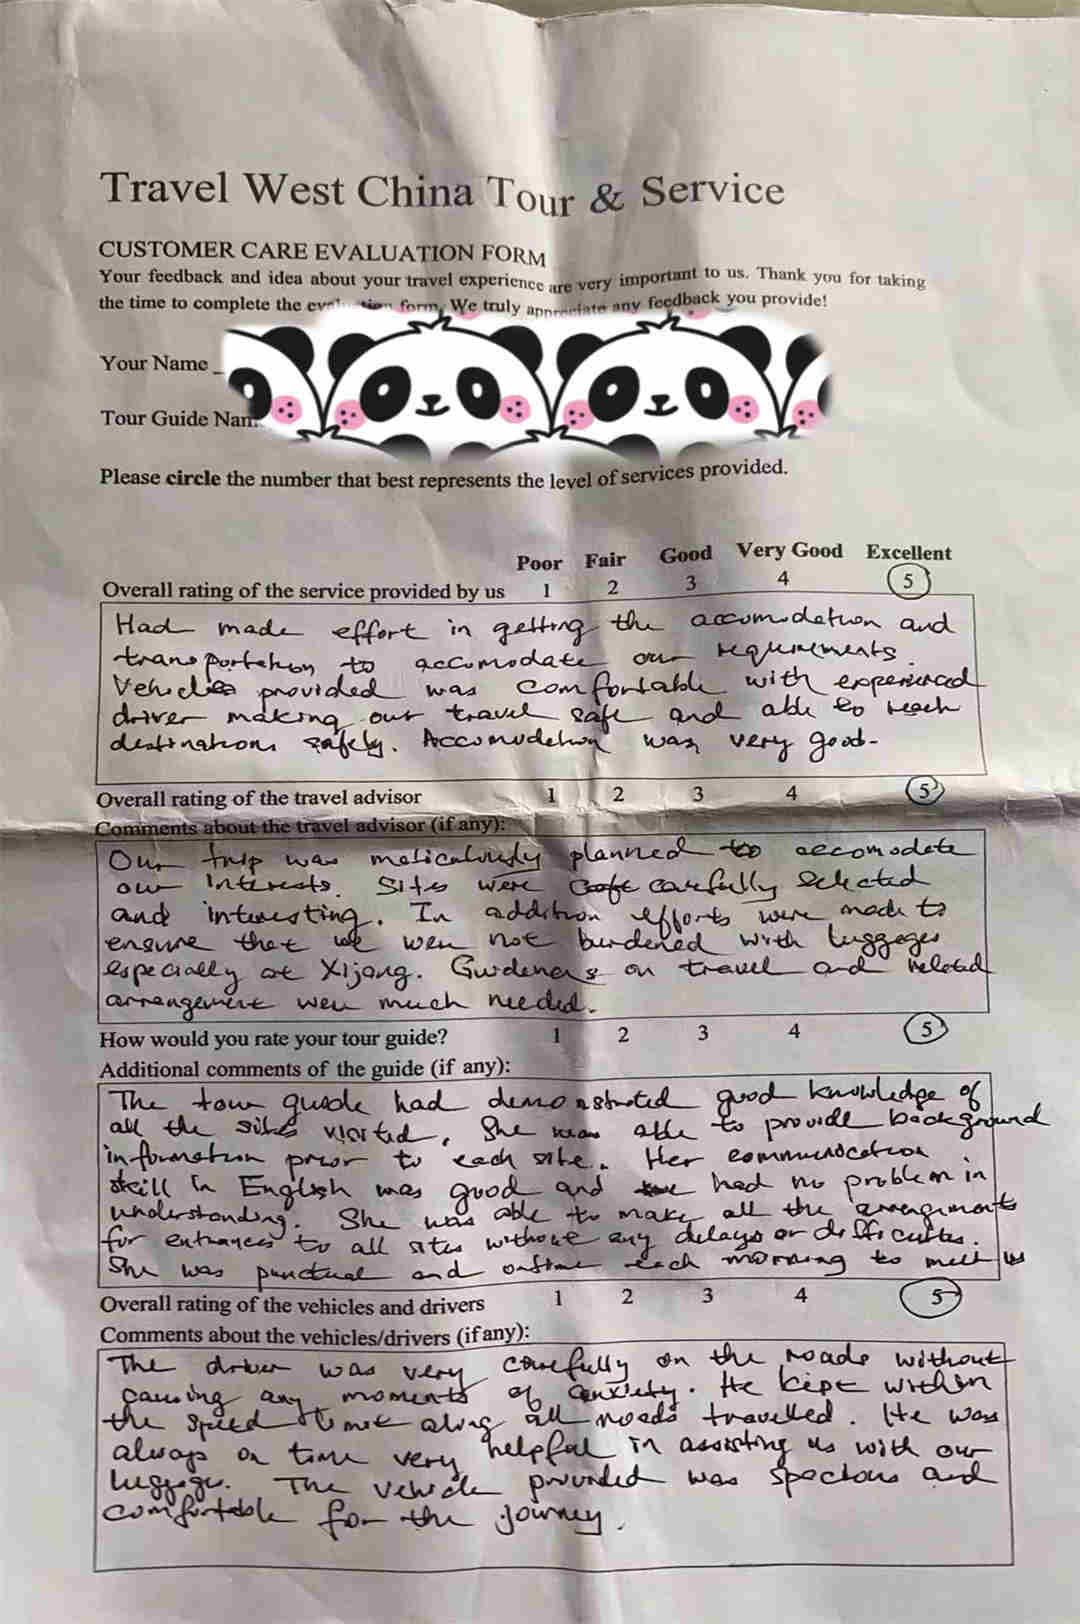 Travel West China Tour & Service
CUSTOMER CARE EVALUATION FORM
Your feedback and idea about your travel experience are very important to us. Thank you for taking
the time to complete the evaluation form. We truly appreciate any feedback you provide!
Your Name
Tour Guide Nam
Please circle the number that best represents the level of services provided.
Poor Fair Good Very Good Excellent
Overall rating of the service provided by us 1 2 3 4 5
Had made effort in getting the accomodation and
transportation to accomodate our requirements.
Vehicles provided was comfortable with experienced
driver making our travel safe and able to reach
destinations safely. Accomodation was very good.
Overall rating of the travel advisor 1 2 3 4 5
Comments about the travel advisor (if any):
Our trip was meticulously planned to accomodate
our interests. Sites were carefully selected
and interesting. In addition efforts were made to
ensure that we were not burdened with luggages
especially at Xijang. Guideness on travel and related
arrangement were much needed.
How would you rate your tour guide? 1 2 3 4 5
Additional comments of the guide (if any):
The tour guide had demonstrated good knowledge of
all the sites visited. She was able to provide background
information prior to each site. Her communication
skill in English was good and had no problem in
understanding. She was able to make all the arrangements
for entrances to all sites without any delays or difficulties.
She was punctual and ontime each morning to meet us
Overall rating of the vehicles and drivers 1 2 3 4 5
Comments about the vehicles/drivers (if any):
The driver was very carefully on the roads without
causing any moments of anxiety. He kept within
the speed limit along all roads travelled. He was
always on time very helpful in assisting us with our
luggages. The vehicle provided was spacious and
comfortable for the journey.